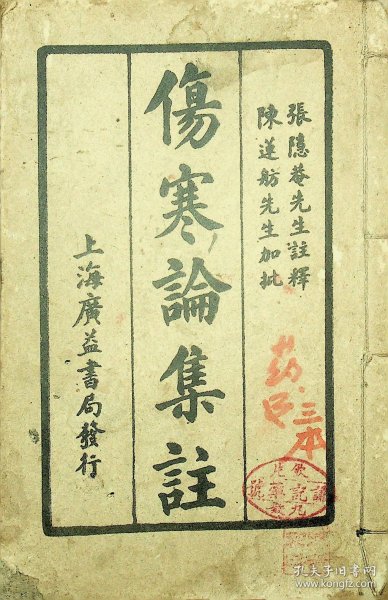 張隱菴先生註釋
陳蓮舫先生加批
傷寒論集註
上海廣益書局發行
三本
孔夫子旧书网
www.kongfz.com